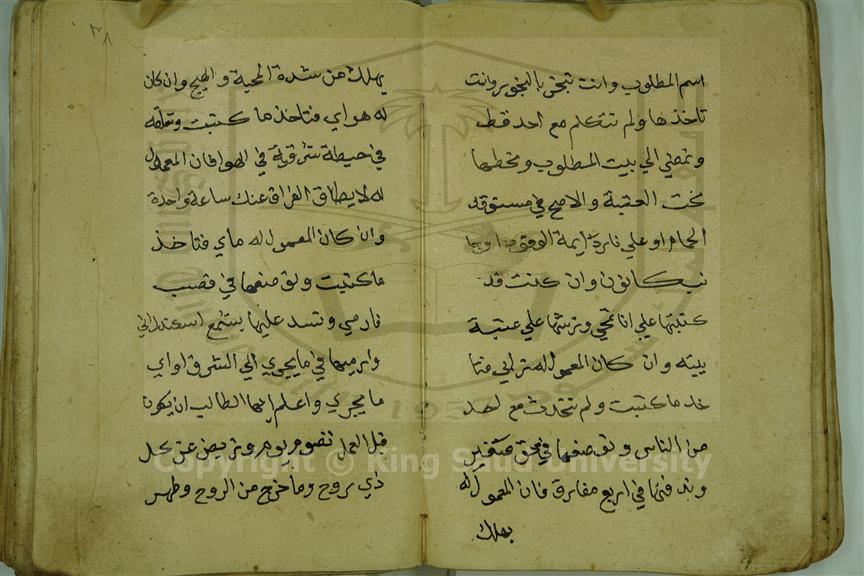 اسم المطلوب وانت تبخر بالبخور وانت
تاخذها ولم تتكلم مع احد قط
وتمضي الي بيت المطلوب وتحطها
تحت العتبة والاصح في مستوقد
الحمام او علي نار دايمة الوقود
كانون وان كنت قد
كتبتها علي اناء تمحي وترشها علي عتبة
بيته وان كان المعمول له ترابي فتا
خد ما كتبت ولم تتحدث مع احد
من الناس وتضعها في
وتدفنها في اربع مفارق فان المعمول له
يهلك
٣٨
يهلك من شدة المحبة والهيج وان كان
له هواي فتاخذ ما كتبت وتعلقه
في حيطة شرقية في الهوا فان المعمول
له لا يطاق الفراق عنك ساعة واحدة
وان كان المعمول له ماي فتاخذ
ما كتبت وتضعها في قصب
فارسي وتسد عليها بشمع
وارميها في ما يجري الي الشرق او اي
ما يجري واعلم ايها الطالب ان يكون
قبل العمل تصوم يوم وتريض عن كل
ذي روح وما خرج من الروح وطهر
Copyright © King Saud University
1957